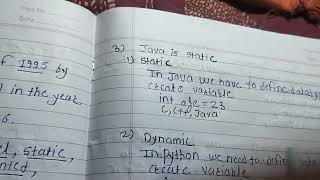 of 1995 by
d in the year
6.
static,
3) Java is static
1) Static
In Java we have to define
create variable
int age = 23
C, C++, Java
2) Dynamic
In python we need to define
create variable